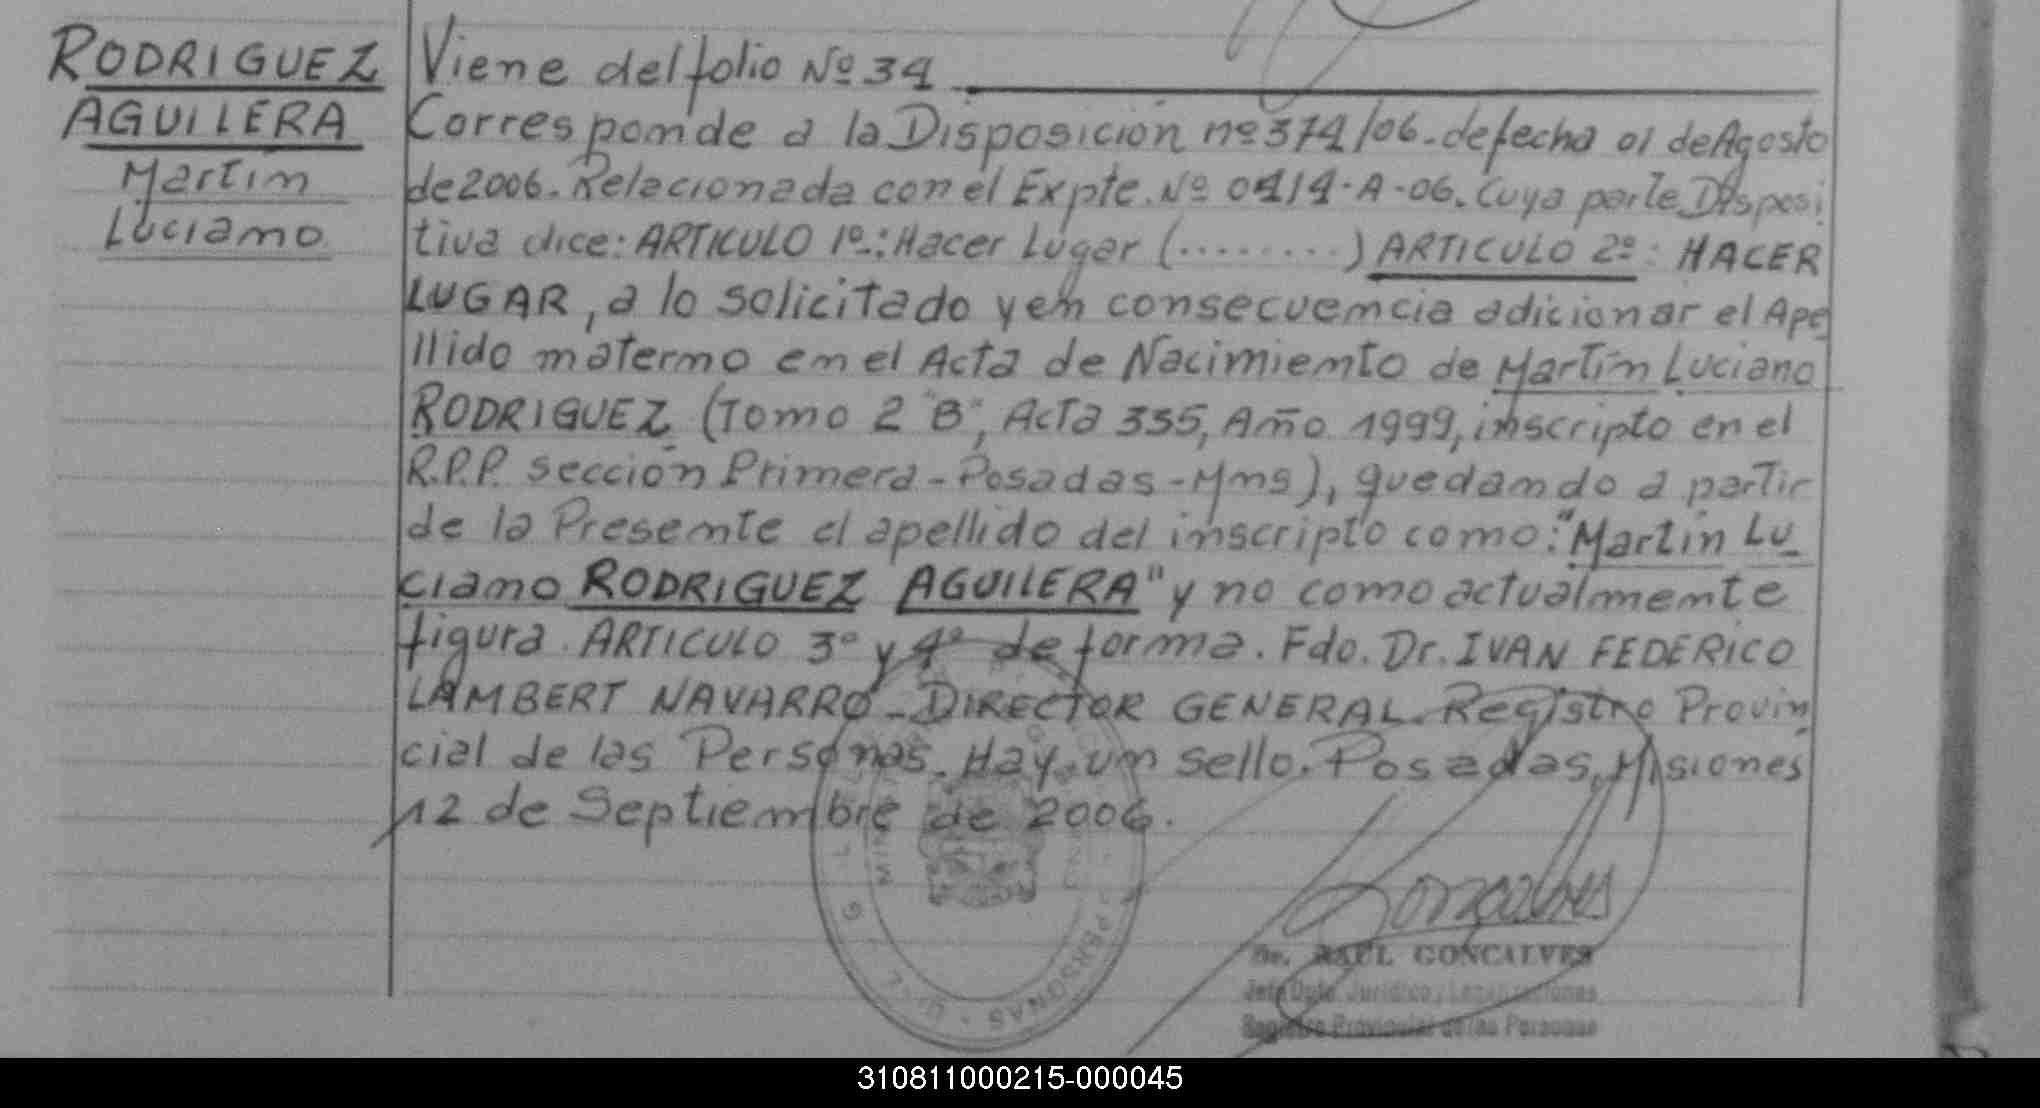 RODRIGUEZ
AGUILERA
Martin
Luciano
Viene del folio Nº 34
Corresponde a la Disposición nº 374/06. de fecha 01 de Agosto
de 2006. Relacionada con el Expte. Nº 0414-A-06. Cuya parte Disposi
tiva dice: ARTICULO 1º: Hacer Lugar (........) ARTICULO 2º: HACER
LUGAR, a lo solicitado y en consecuencia adicionar el Ape
llido materno en el Acta de Nacimiento de Martín Luciano
RODRIGUEZ (Tomo 2 "B", Acta 335, Año 1999, inscripto en el
R.P.P. sección Primera - Posadas - Mns), quedando a partir
de la Presente el apellido del inscripto como: "Martín Lu
ciano RODRIGUEZ AGUILERA" y no como actualmente
figura. ARTICULO 3º y 4º de forma. Fdo. Dr. IVAN FEDERICO
LAMBERT NAVARRO - DIRECTOR GENERAL. Registro Provin
cial de las Personas. Hay un sello. Posadas, Misiones
12 de Septiembre de 2006.
PERSONAS
Goncalves
Dr. RAUL GONCALVES
Jefe Dpto. Jurídico, Legalizaciones
Registro Provincial de las Personas
310811000215-000045